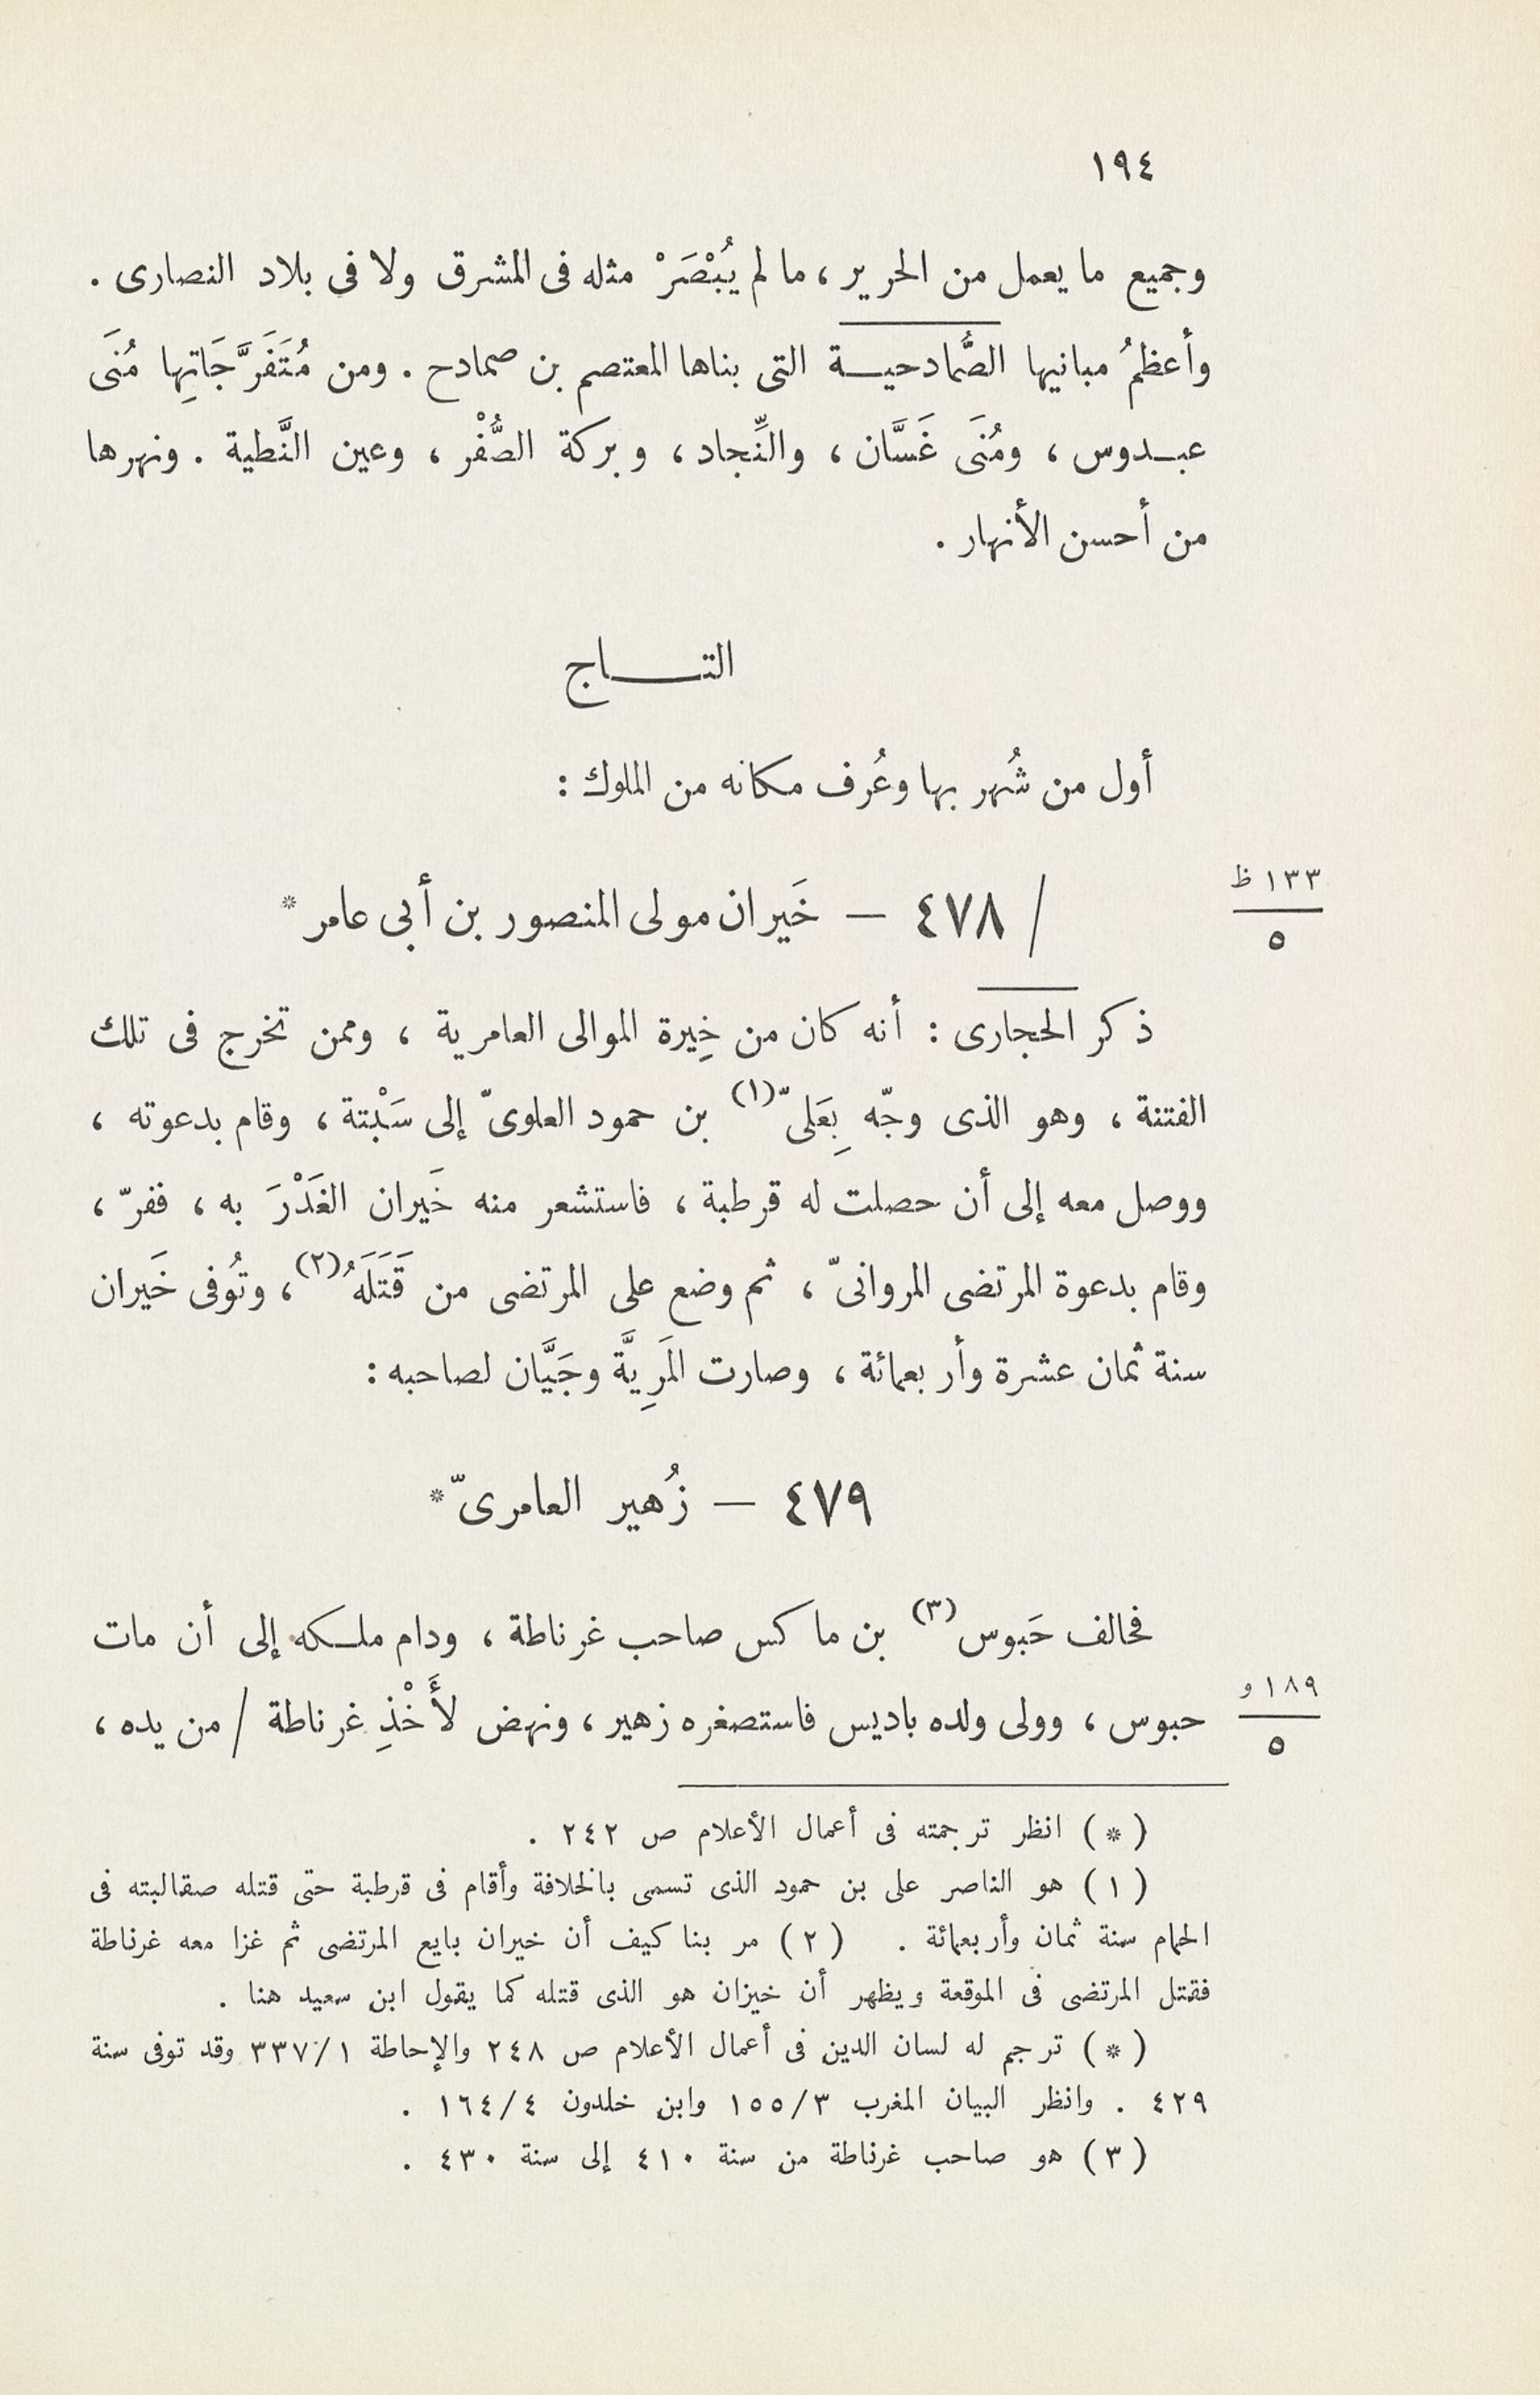 ١٩٤
وجميع ما يعمل من الحرير ، ما لم يُبْصَرْ مثله فى المشرق ولا فى بلاد النصارى .
وأعظمُ مبانيها الصُّمادحيـــة التى بناها المعتصم بن صمادح . ومن مُتَفَرَّجَاتِها مُنَى
عبــدوس ، ومُنَى غَسَّان ، والنِّجاد ، وبركة الصُّفْر ، وعين النَّطية . ونهرها
من أحسن الأنهار .
التــــــاج
أول من شُهر بها وعُرف مكانه من الملوك :
١٣٣ ظ
٥
/ ٤٧٨ — خَيران مولى المنصور بن أبى عامر *
ذكر الحجارى : أنه كان من خِيرة الموالى العامرية ، وممن تخرج فى تلك
الفتنة ، وهو الذى وجّه بِعَلىّ (١) بن حمود العلوىّ إلى سَبْتة ، وقام بدعوته ،
ووصل معه إلى أن حصلت له قرطبة ، فاستشعر منه خَيران الغَدْرَ به ، ففرّ ،
وقام بدعوة المرتضى المروانىّ ، ثم وضع على المرتضى من قَتَلَهُ (٢) ، وتُوفى خَيران
سنة ثمان عشرة وأربعمائة ، وصارت المَرِيَّة وجَيَّان لصاحبه :
٤٧٩ — زُهير العامرىّ *
فحالف حَبوس (٣) بن ماكس صاحب غرناطة ، ودام ملــكه إلى أن مات
١٨٩ و
٥
حبوس ، وولى ولده باديس فاستصغره زهير ، ونهض لأَخْذِ غرناطة / من يده ،
( * ) انظر ترجمته فى أعمال الأعلام ص ٢٤٢ .
( ١ ) هو الناصر على بن حمود الذى تسمى بالخلافة وأقام فى قرطبة حتى قتله صقالبته فى
الحمام سنة ثمان وأربعمائة . ( ٢ ) مر بنا كيف أن خيران بايع المرتضى ثم غزا معه غرناطة
فقتل المرتضى فى الموقعة ويظهر أن خيزان هو الذى قتله كما يقول ابن سعيد هنا .
( * ) ترجم له لسان الدين فى أعمال الأعلام ص ٢٤٨ والإحاطة ٣٣٧/١ وقد توفى سنة
٤٢٩ . وانظر البيان المغرب ١٥٥/٣ وابن خلدون ١٦٤/٤ .
( ٣ ) هو صاحب غرناطة من سنة ٤١٠ إلى سنة ٤٣٠ .